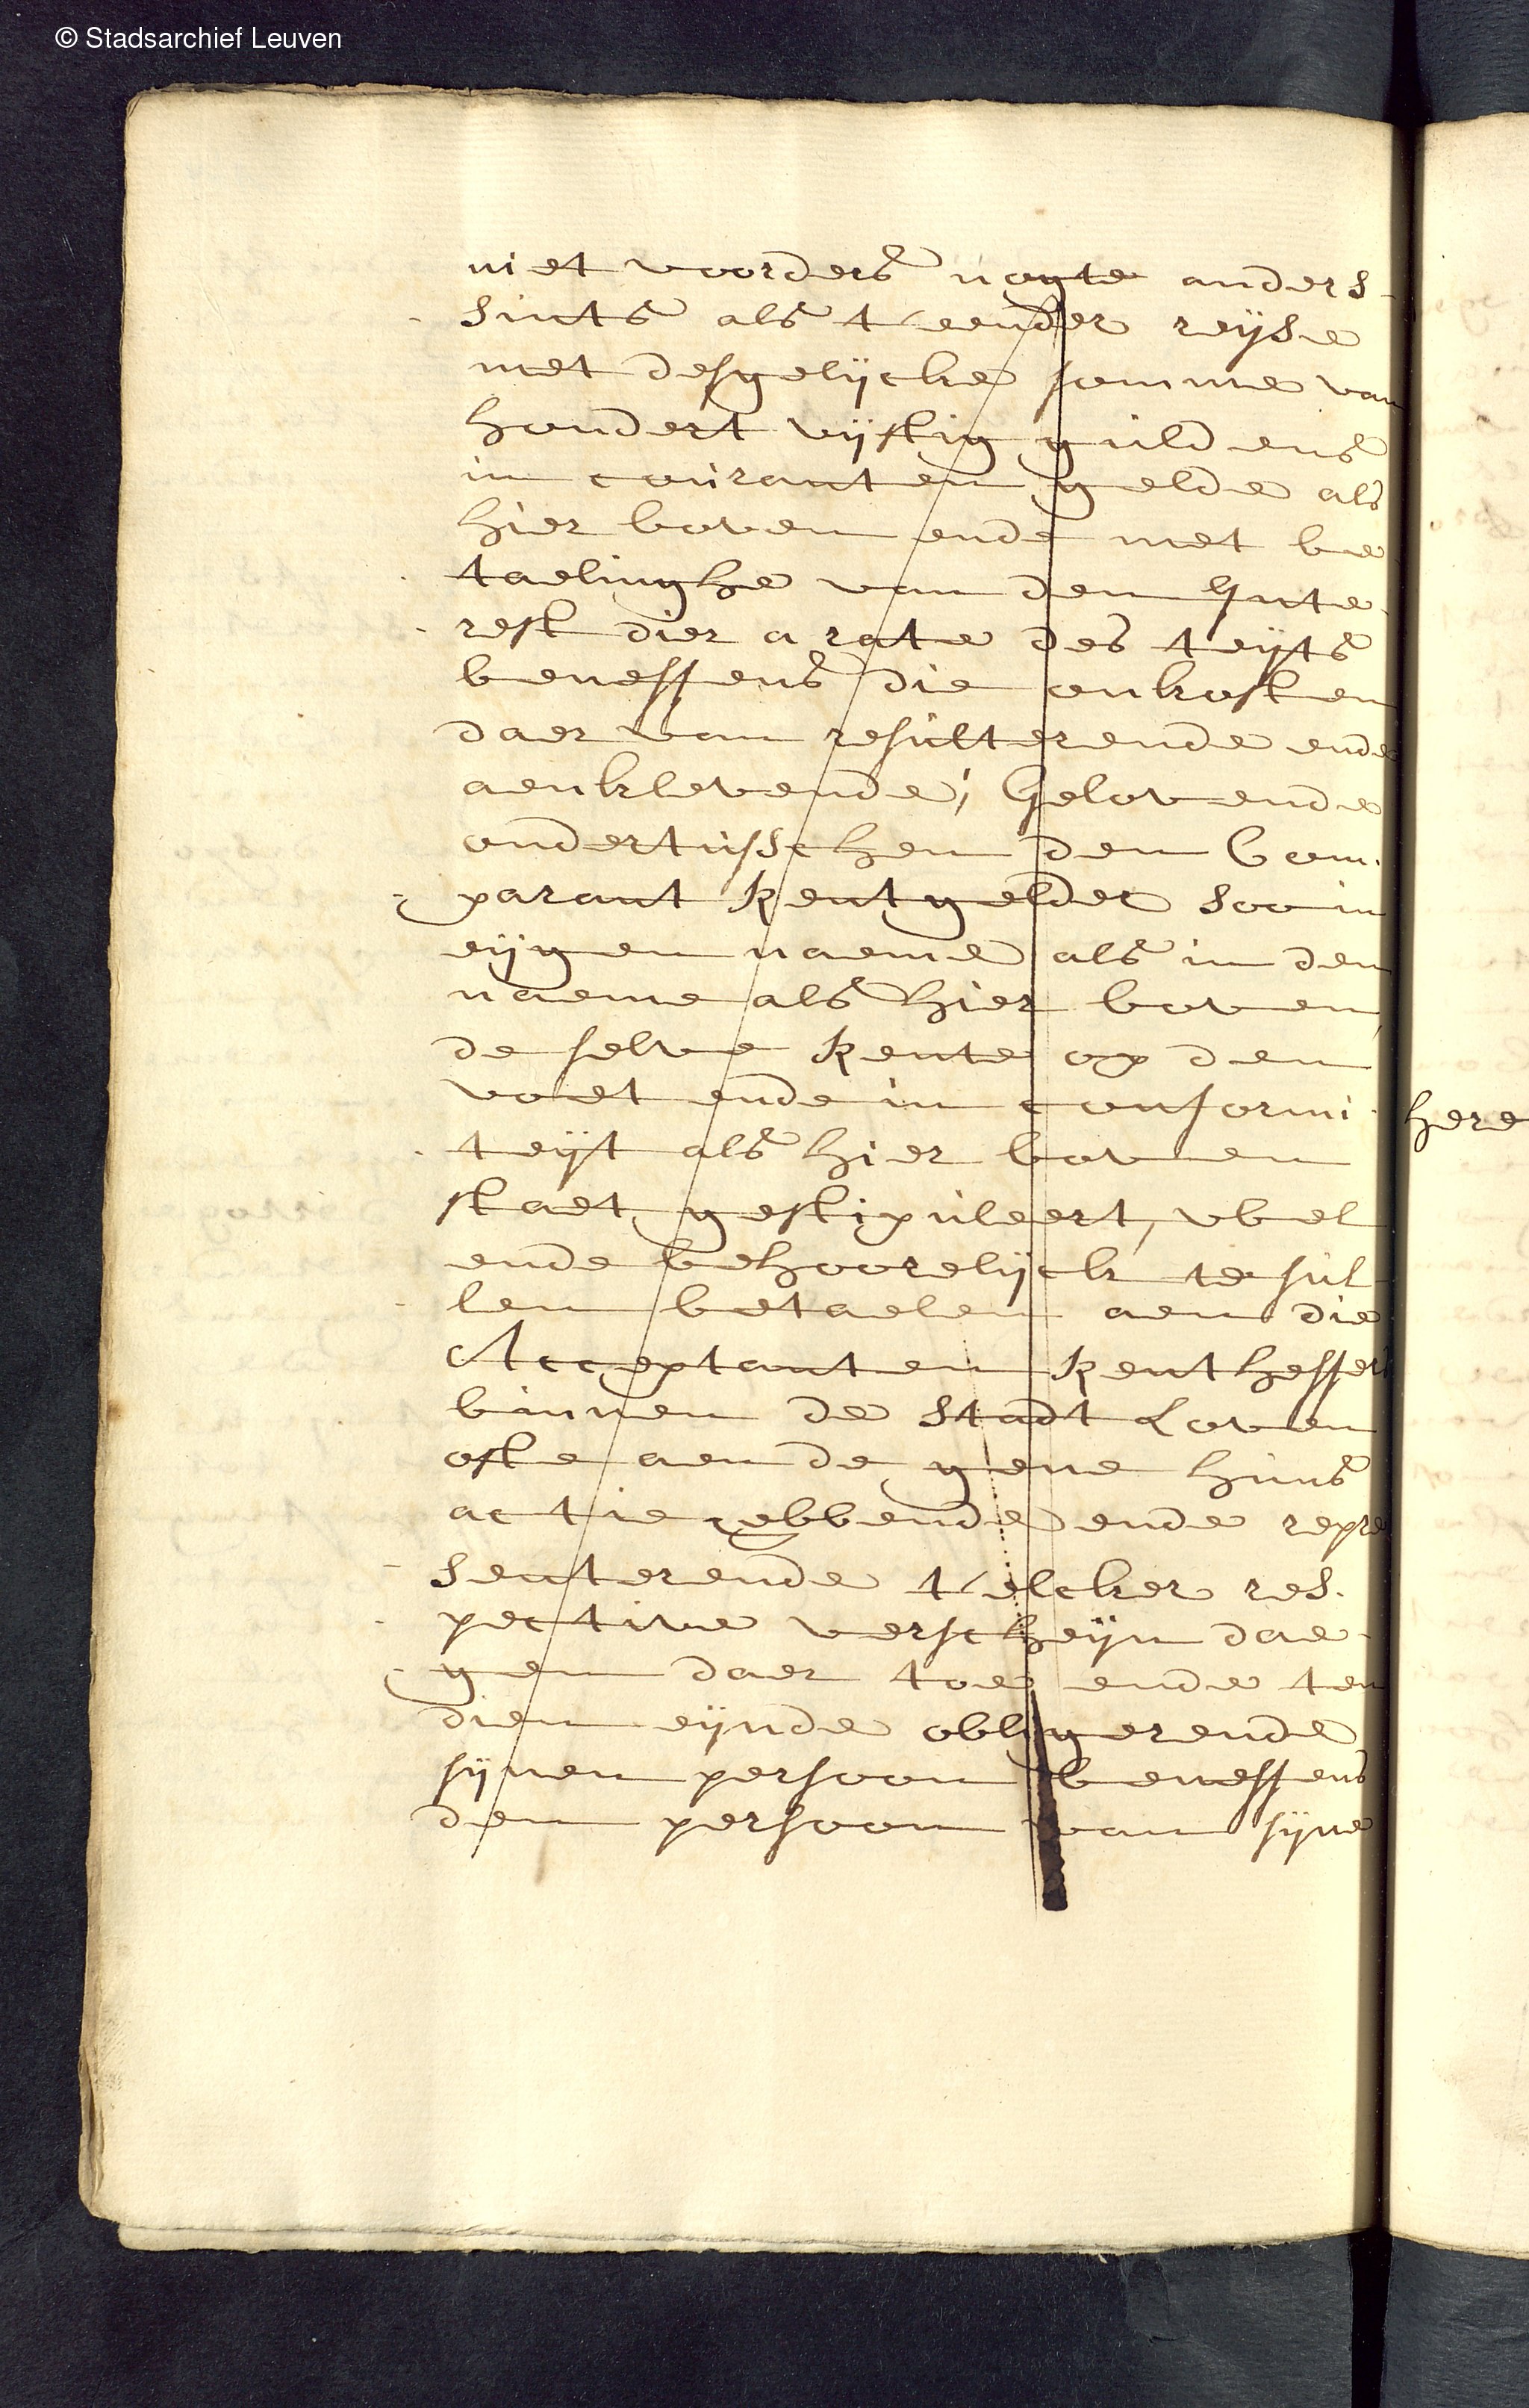 © Stadsarchief Leuven
niet voorders nogte anders-
sints als t'eender reijse
met desgelijcke somme van
hondert vijftig guldens
in couranten gelde als
hier boven ende met be
taelinghe van den Inte-
rest dier a rate des teijts
beneffens die onkosten
daer van resulterende ende
aenklevende; Gelovende
ondertusschen den Com-
parant Rentgelder soo in
eijgen naeme als in den
naeme als hier boven,
de selve Rente op den
voet ende in conformi-
teijt als hier boven
staet gestipuleert, wel
ende behoorelijck te sul
len betaelen aen die
Acceptanten Rentheffers
binnen de stadt Loven
ofte aen de gene huns
actie hebbende ende repre
senterende t'elcker res-
pective verscheijn dae-
gen daer toe ende ten
dien eijnde obligerende
sijnen persoon beneffens
den persoon van sijne
here